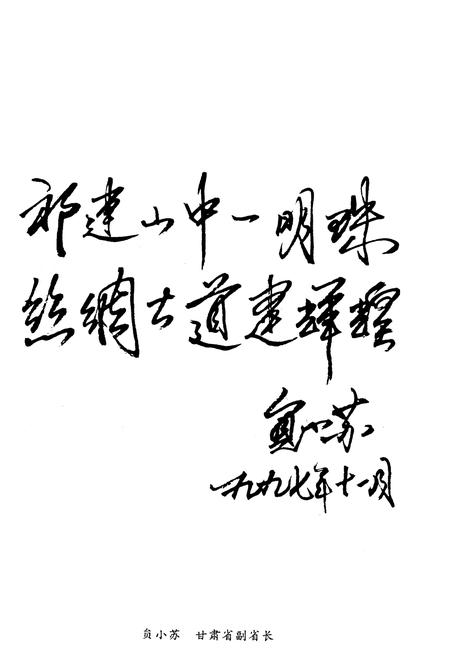 祁连山中一明珠
丝绸古道建辉煌
贠小苏
一九九七年十一月
贠小苏 甘肃省副省长